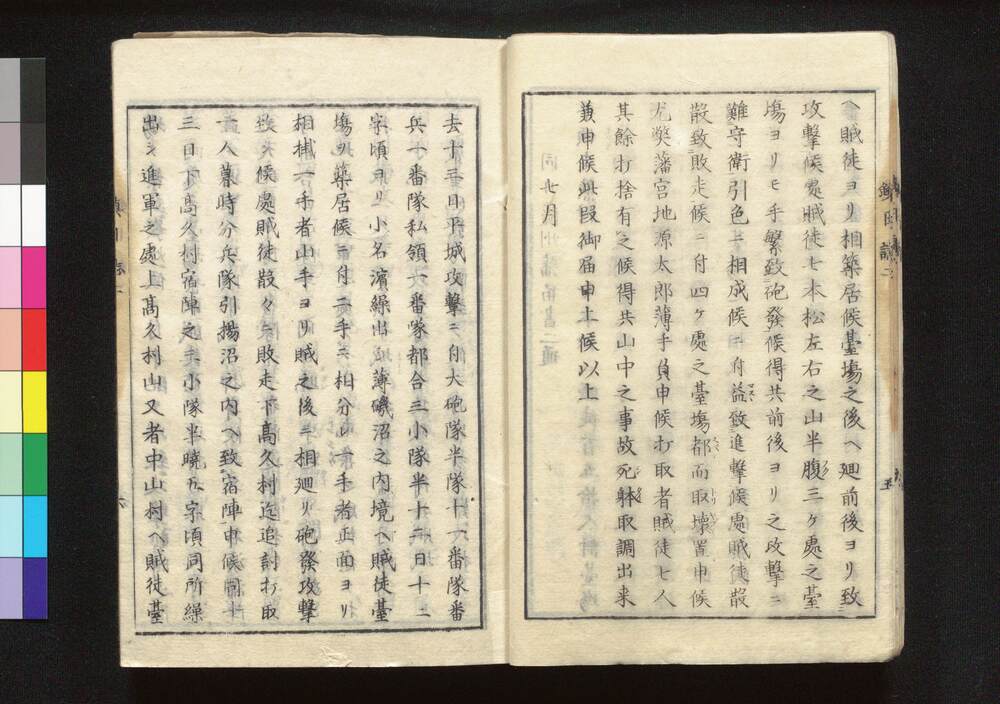 ヘ賊徒ヨリ相築居候臺塲之後ヘ廻前後ヨリ致
攻撃候處賊徒七本松左右之山半腹三ケ處之臺
塲ヨリモ手繁致砲發候得共前後ヨリ之攻撃ニ
難守衛引色ニ相成候ニ付益致進撃候處賊徒散
散致敗走候ニ付四ケ處之臺塲都而取壊置申候
尤弊藩宮地源太郎薄手負申候打取者賊徒七人
其餘打捨有之候得共山中之事故死躰取調出来
兼申候此段御届申上候以上
同七月
去十三日平城攻撃ニ付大砲隊半隊十一番隊番
兵一番隊私領一番隊都合三小隊半十二日十二
字頃ヨリ小名濱繰出薄磯沼之内境ヘ賊徒臺
塲ヲ築居候ニ付二手ニ相分レ一手者正面ヨリ
相捕一手者山手ヨリ賊之後ニ相廻リ砲發攻撃
致候處賊徒散々ニ敗走下髙久村迄追討打取
一人暮時分兵隊引揚沼之内ヘ致宿陣申候同十
三日下髙久村宿陣之小隊半曉九字頃同所繰
出シ進軍之處上髙久村山又者中山村ヘ賊徒臺